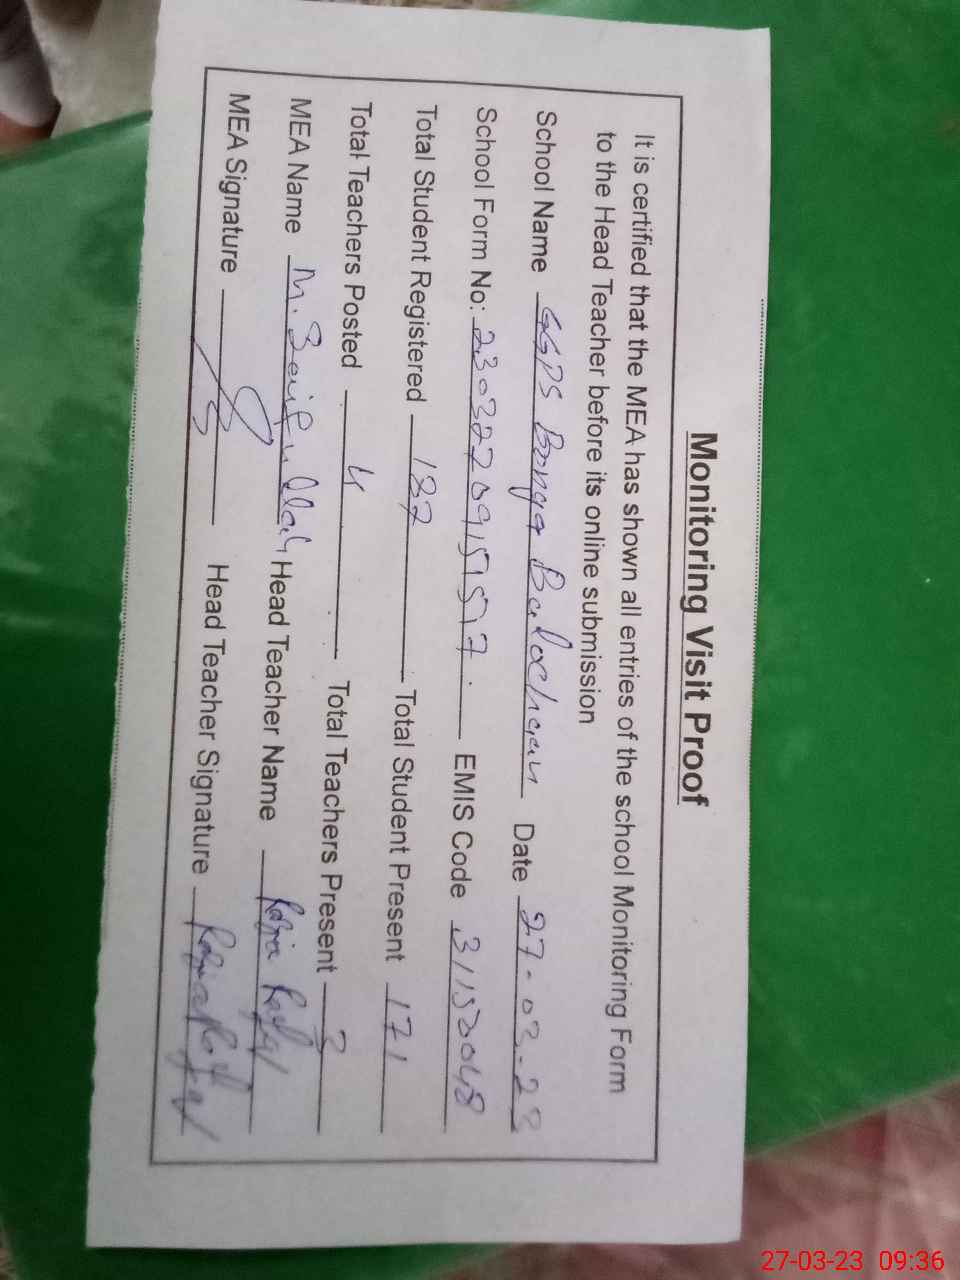 Monitoring Visit Proof
It is certified that the MEA has shown all entries of the school Monitoring Form
to the Head Teacher before its online submission
School Name GGPS Bonga Balochan Date 27-03-23
School Form No: 2303270915957 EMIS Code 31130048
Total Student Registered 187 Total Student Present 171
Total Teachers Posted 4 Total Teachers Present 3
MEA Name M. Saif ullah Head Teacher Name Razia
MEA Signature Head Teacher Signature Razia
27-03-23 09:36